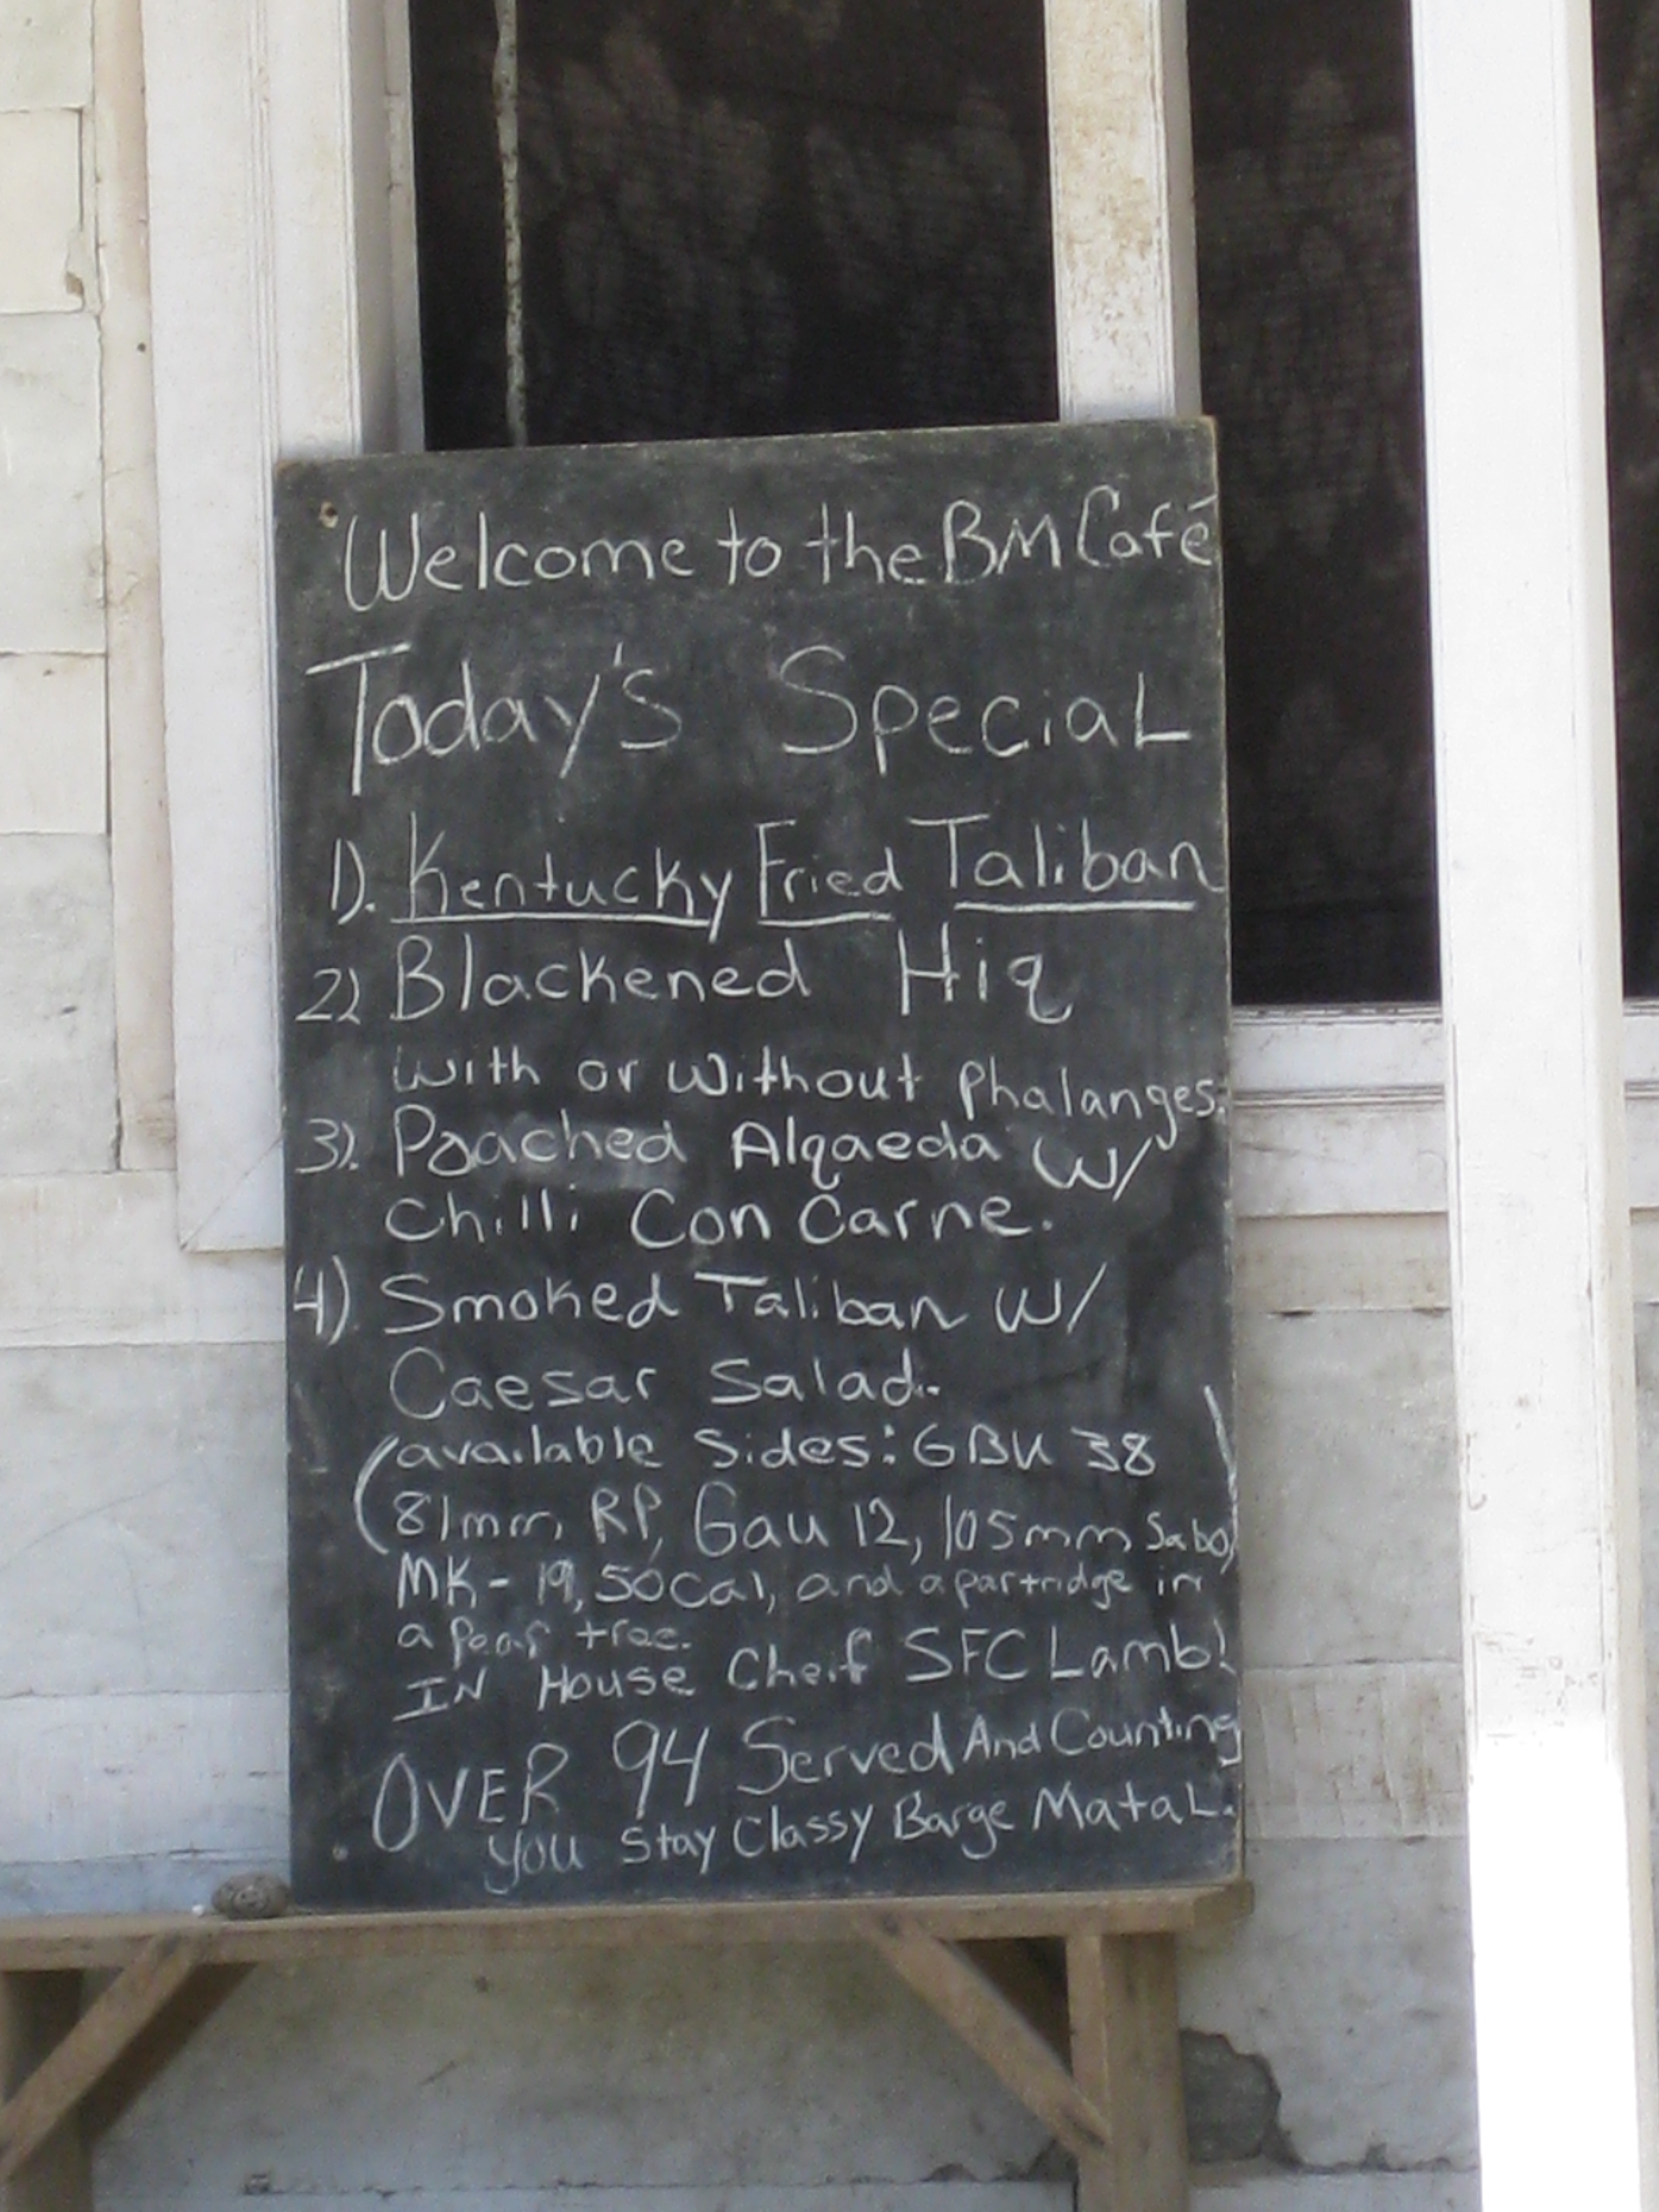 Welcome to the BM Café
Today's Special
1). Kentucky Fried Taliban
2) Blackened Hiq
with or without phalanges.
3). Poached Alqaeda w/
Chilli Con Carne.
4) Smoked Taliban w/
Caesar Salad.
(available sides: GBU 38
81mm, RP, Gau 12, 105mm Sabo,
MK-19, 50 Cal, and a partridge in
a pear tree.
IN House Cheif SFC Lamb!
OVER 94 Served And Counting
you Stay Classy Barge Matal.